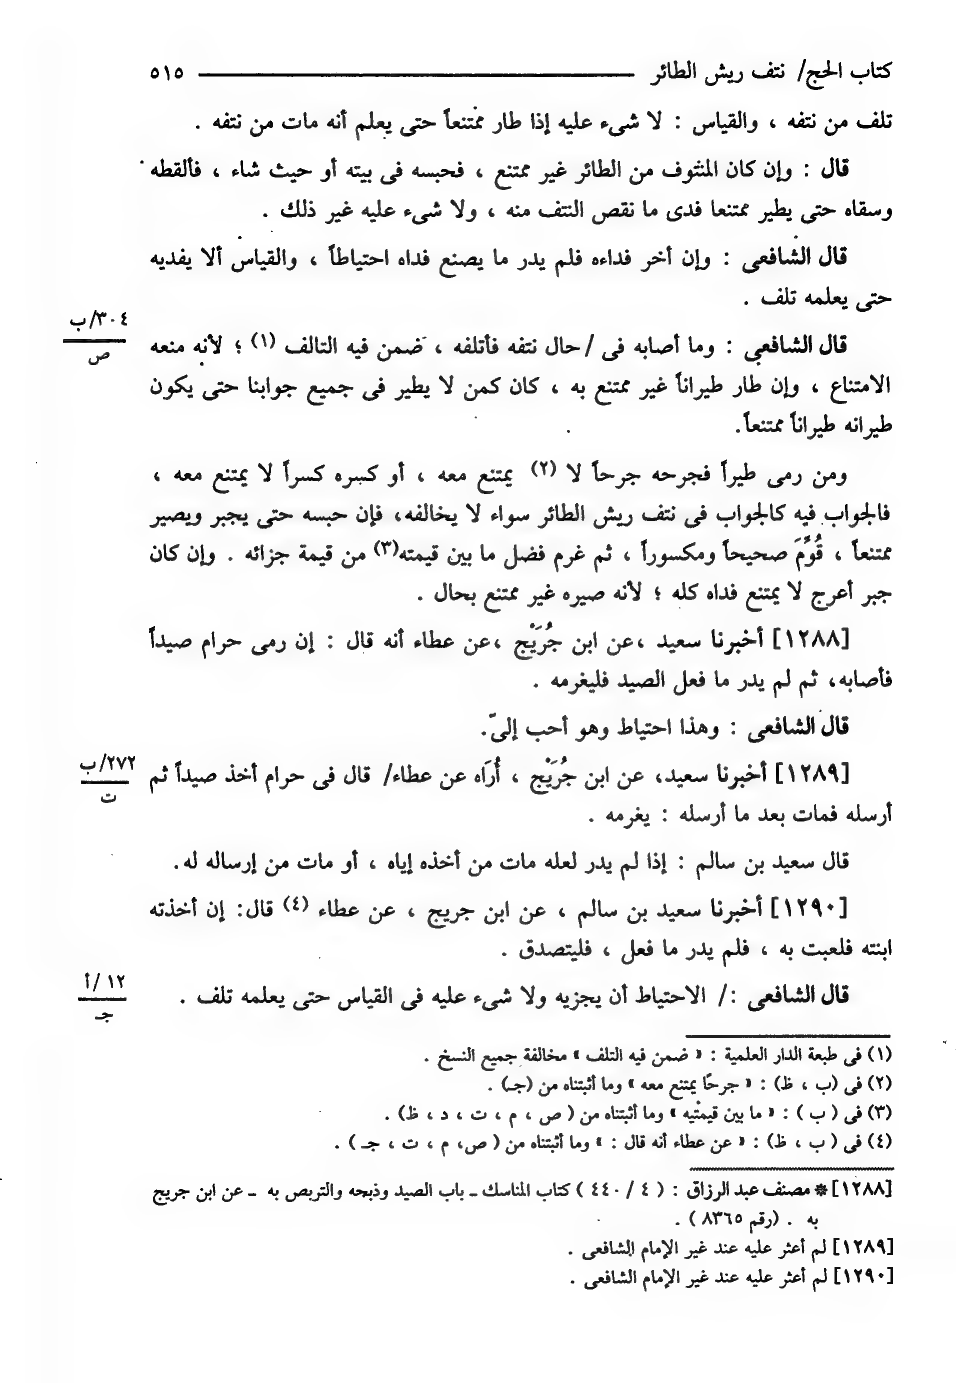 كتاب الحج/ نتف ريش الطائر ٥١٥
تلف من نتفه ، والقياس : لا شىء عليه إذا طار ممتنعاً حتى يعلم أنه مات من نتفه .
قال : وإن كان المنتوف من الطائر غير ممتنع ، فحبسه فى بيته أو حيث شاء ، فألقطه
وسقاه حتى يطير ممتنعا فدى ما نقص النتف منه ، ولا شىء عليه غير ذلك .
قال الشافعى : وإن أخر فداءه فلم يدر ما يصنع فداه احتياطاً ، والقياس ألا يفديه
حتى يعلمه تلف .
قال الشافعى : وما أصابه فى / حال نتفه فأتلفه ، ضمن فيه التالف (١) ؛ لأنه منعه
٣٠٤/ب
ص
الامتناع ، وإن طار طيراناً غير ممتنع به ، كان كمن لا يطير فى جميع جوابنا حتى يكون
طيرانه طيراناً ممتنعاً.
ومن رمى طيراً فجرحه جرحاً لا (٢) يمتنع معه ، أو كسره كسراً لا يمتنع معه ،
فالجواب فيه كالجواب فى نتف ريش الطائر سواء لا يخالفه، فإن حبسه حتى يجبر ويصير
ممتنعاً ، قُوِّمَ صحيحاً ومكسوراً ، ثم غرم فضل ما بين قيمته(٣) من قيمة جزائه . وإن كان
جبر أعرج لا يمتنع فداه كله ؛ لأنه صيره غير ممتنع بحال .
[١٢٨٨] أخبرنا سعيد ،عن ابن جُرَيْج ،عن عطاء أنه قال : إن رمى حرام صيداً
فأصابه، ثم لم يدر ما فعل الصيد فليغرمه .
قال الشافعى : وهذا احتياط وهو أحب إلىّ.
[١٢٨٩] أخبرنا سعيد، عن ابن جُرَيْج ، أُرَاه عن عطاء/ قال فى حرام أخذ صيداً ثم
٢٧٢/ب
ت
أرسله فمات بعد ما أرسله : يغرمه .
قال سعيد بن سالم : إذا لم يدر لعله مات من أخذه إياه ، أو مات من إرساله له.
[١٢٩٠] أخبرنا سعيد بن سالم ، عن ابن جريج ، عن عطاء (٤) قال: إن أخذته
ابنته فلعبت به ، فلم يدر ما فعل ، فليتصدق .
قال الشافعى :/ الاحتياط أن يجزيه ولا شىء عليه فى القياس حتى يعلمه تلف .
١٢ /أ
جـ
(١) فى طبعة الدار العلمية : « ضمن فيه التلف » مخالفة جميع النسخ .
(٢) فى (ب ، ظ) : « جرحًا يمتنع معه » وما أثبتناه من (جـ) .
(٣) فى ( ب ) : « ما بين قيمتيه » وما أثبتناه من ( ص ، م ، ت ، د ، ظ) .
(٤) فى ( ب ، ظ) : « عن عطاء أنه قال : » وما أثبتناه من ( ص، م ، ت ، جـ ) .
[١٢٨٨] * مصنف عبد الرزاق : ( ٤ / ٤٤٠ ) كتاب المناسك ـ باب الصيد وذبحه والتربص به ـ عن ابن جريج
به . (رقم ٨٣٦٥ ) .
[١٢٨٩] لم أعثر عليه عند غير الإمام الشافعى .
[١٢٩٠] لم أعثر عليه عند غير الإمام الشافعى .